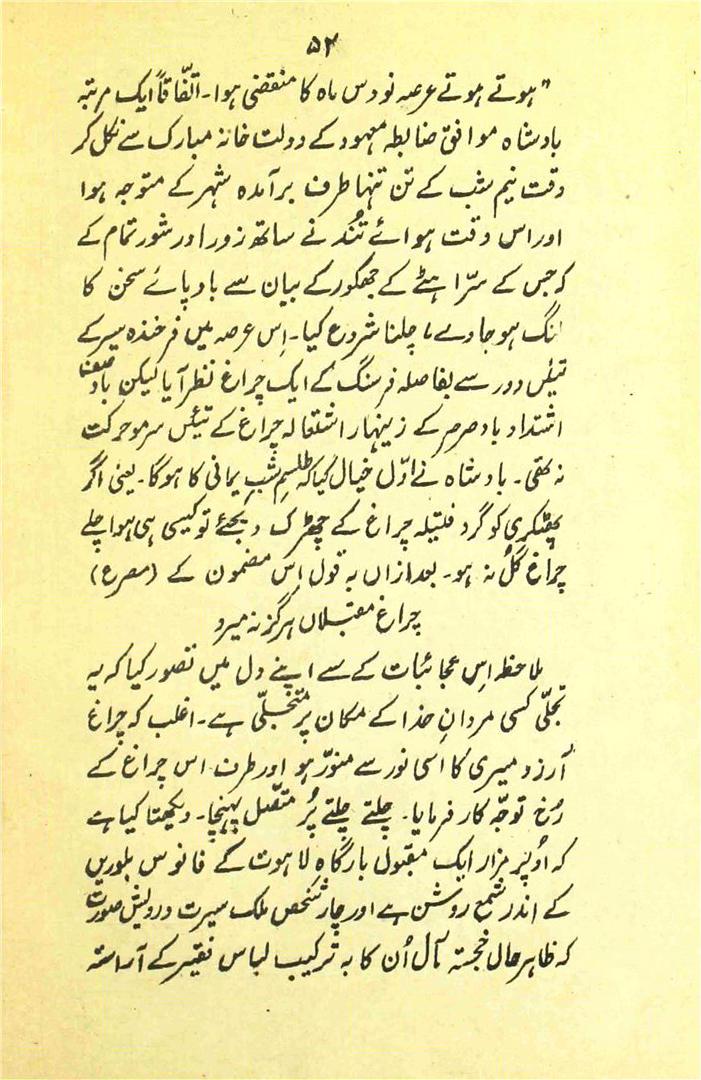 ۵۲
"ہوتے ہوتے عرصہ نو دس ماہ کا منقضی ہوا۔ اتفّاقاً ایک مرتبہ
بادشاہ موافق ضابطہ معہود کے دولت خانہ مبارک سے نکل کر
وقت نیم شب کے تن تنہا طرف برآمدہ شہر کے متوجہ ہوا
اور اس وقت ہوائے تُند نے ساتھ زور اور شور تمام کے
کہ جس کے سرّاہٹے کے جھکور کے بیان سے بادپائے سخن کا
لنگ ہو جاوے، چلنا شروع کیا۔ اِس عرصہ میں فرخندہ سیر کے
تیئں دور سے بفاصلہ فرسنگ کے ایک چراغ نظر آیا لیکن باوصف
اشتداد باد صرصر کے زینہار اشتعالہ چراغ کے تیئں سرمو حرکت
نہ تھی۔ بادشاہ نے اوّل خیال کیا کہ طلسمِ شبِ یمانی کا ہوگا۔ یعنی اگر
پھٹکری کو گرد فتیلہ چراغ کے چھڑک دیجئے تو کیسی ہی ہوا چلے
چراغ گُل نہ ہو۔ بعد ازاں بہ قول اِس مضمون کے (مصرع)
چراغِ مقبلاں ہرگز نہ میرد
ملاحظہ اِس عجائبات کے سے اپنے دل میں تصور کیا کہ یہ
تجلّی کسی مردانِ خدا کے مکان پر متجلّی ہے۔ اغلب کہ چراغ
آرزو میری کا اسی نور سے منوّر ہو اور طرف اس چراغ کے
رُخ توجّہ کار فرمایا۔ چلتے چلتے پُر متّصل پہنچا۔ دیکھتا کیا ہے
کہ اوُپر مزار ایک مقبول بارگاہِ لاہوت کے فانوس بلوریں
کے اندر شمع روشن ہے اور چار شخص ملک سیرت درویش صورت
کہ ظاہر حال خجستہ مآل اُن کا بہ ترکیب لباس فقیر کے آراستہ